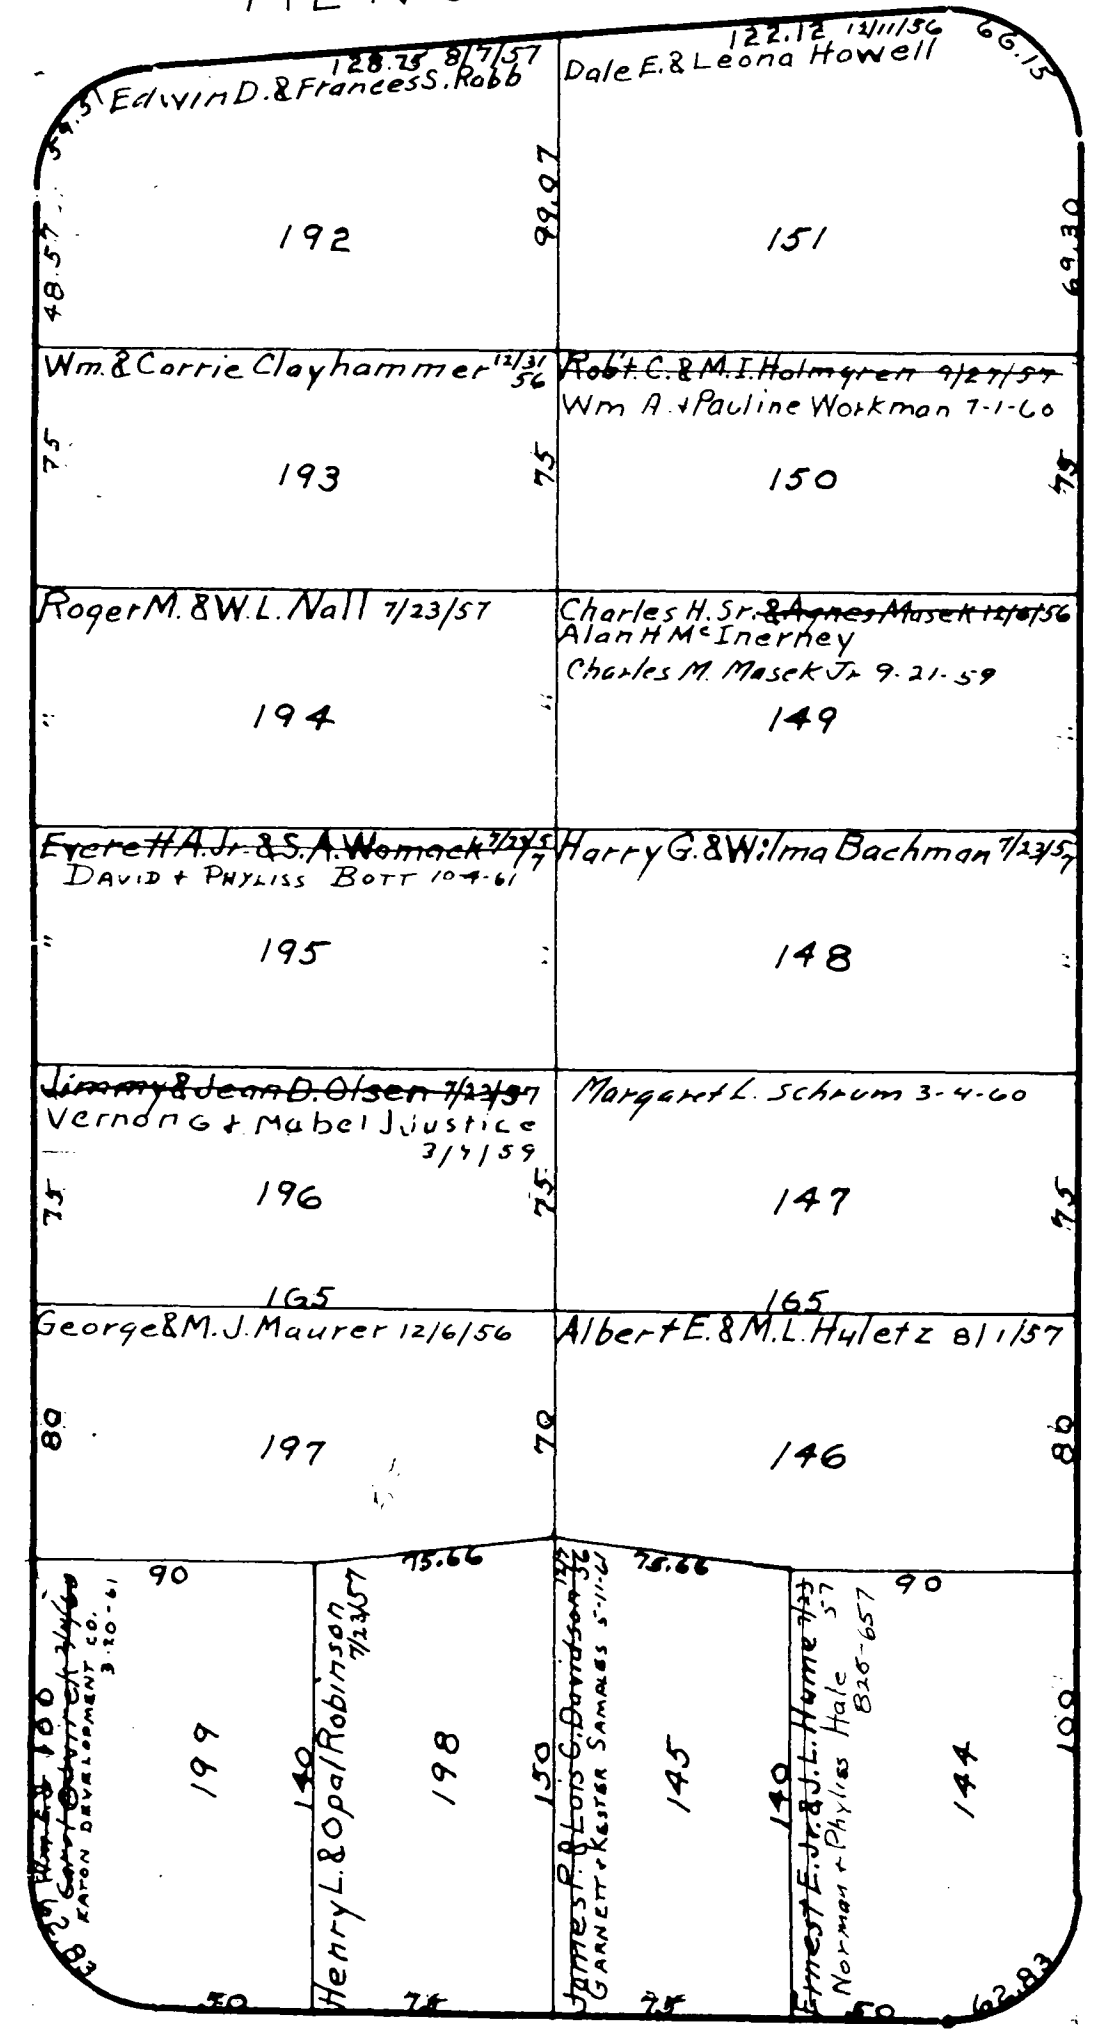 128.75 8/7/57
Edwin D. & Frances S. Robb
59.51
48.57
99.07
192
122.12 12/11/56
Dale E. & Leona Howell
66.15
69.30
151
Wm. & Carrie Clayhammer 12/31/56
75
193
75
Rob't. C. & M. I. Holmgren 9/27/57
Wm A. + Pauline Workman 7-1-60
150
75
Roger M. & W. L. Nall 7/23/57
"
194
"
Charles H. Sr. & Agnes Masek 12/6/56
Alan H McInerney
Charles M. Masek Jr 9-21-59
149
"
Everett A. Jr. & S. A. Womack 7/23/57
DAVID + PHYLISS BOTT 10-4-61
"
195
"
Harry G. & Wilma Bachman 7/23/57
148
"
Jimmy & Jean D. Olsen 7/23/57
Vernon G + Mabel J Justice
3/4/59
75
196
75
165
Margaret L. Schrum 3-4-60
147
75
165
George & M. J. Maurer 12/6/56
80
197
70
Albert E. & M. L. Huletz 8/1/57
146
80
90
100
EATON DEVELOPMENT CO.
3-20-61
199
140
62.83
50
75.66
Henry L. & Opal Robinson
7/23/57
198
150
75
75.66
James P. & Lois C. Davidson 12/7/56
GARNETT + KESTER SAMPLES 5-11-61
145
140
75
90
Ernest E. Jr. & J. L. Hume 7/23/57
Norman + Phyliss Hale
826-657
144
100
50
62.83